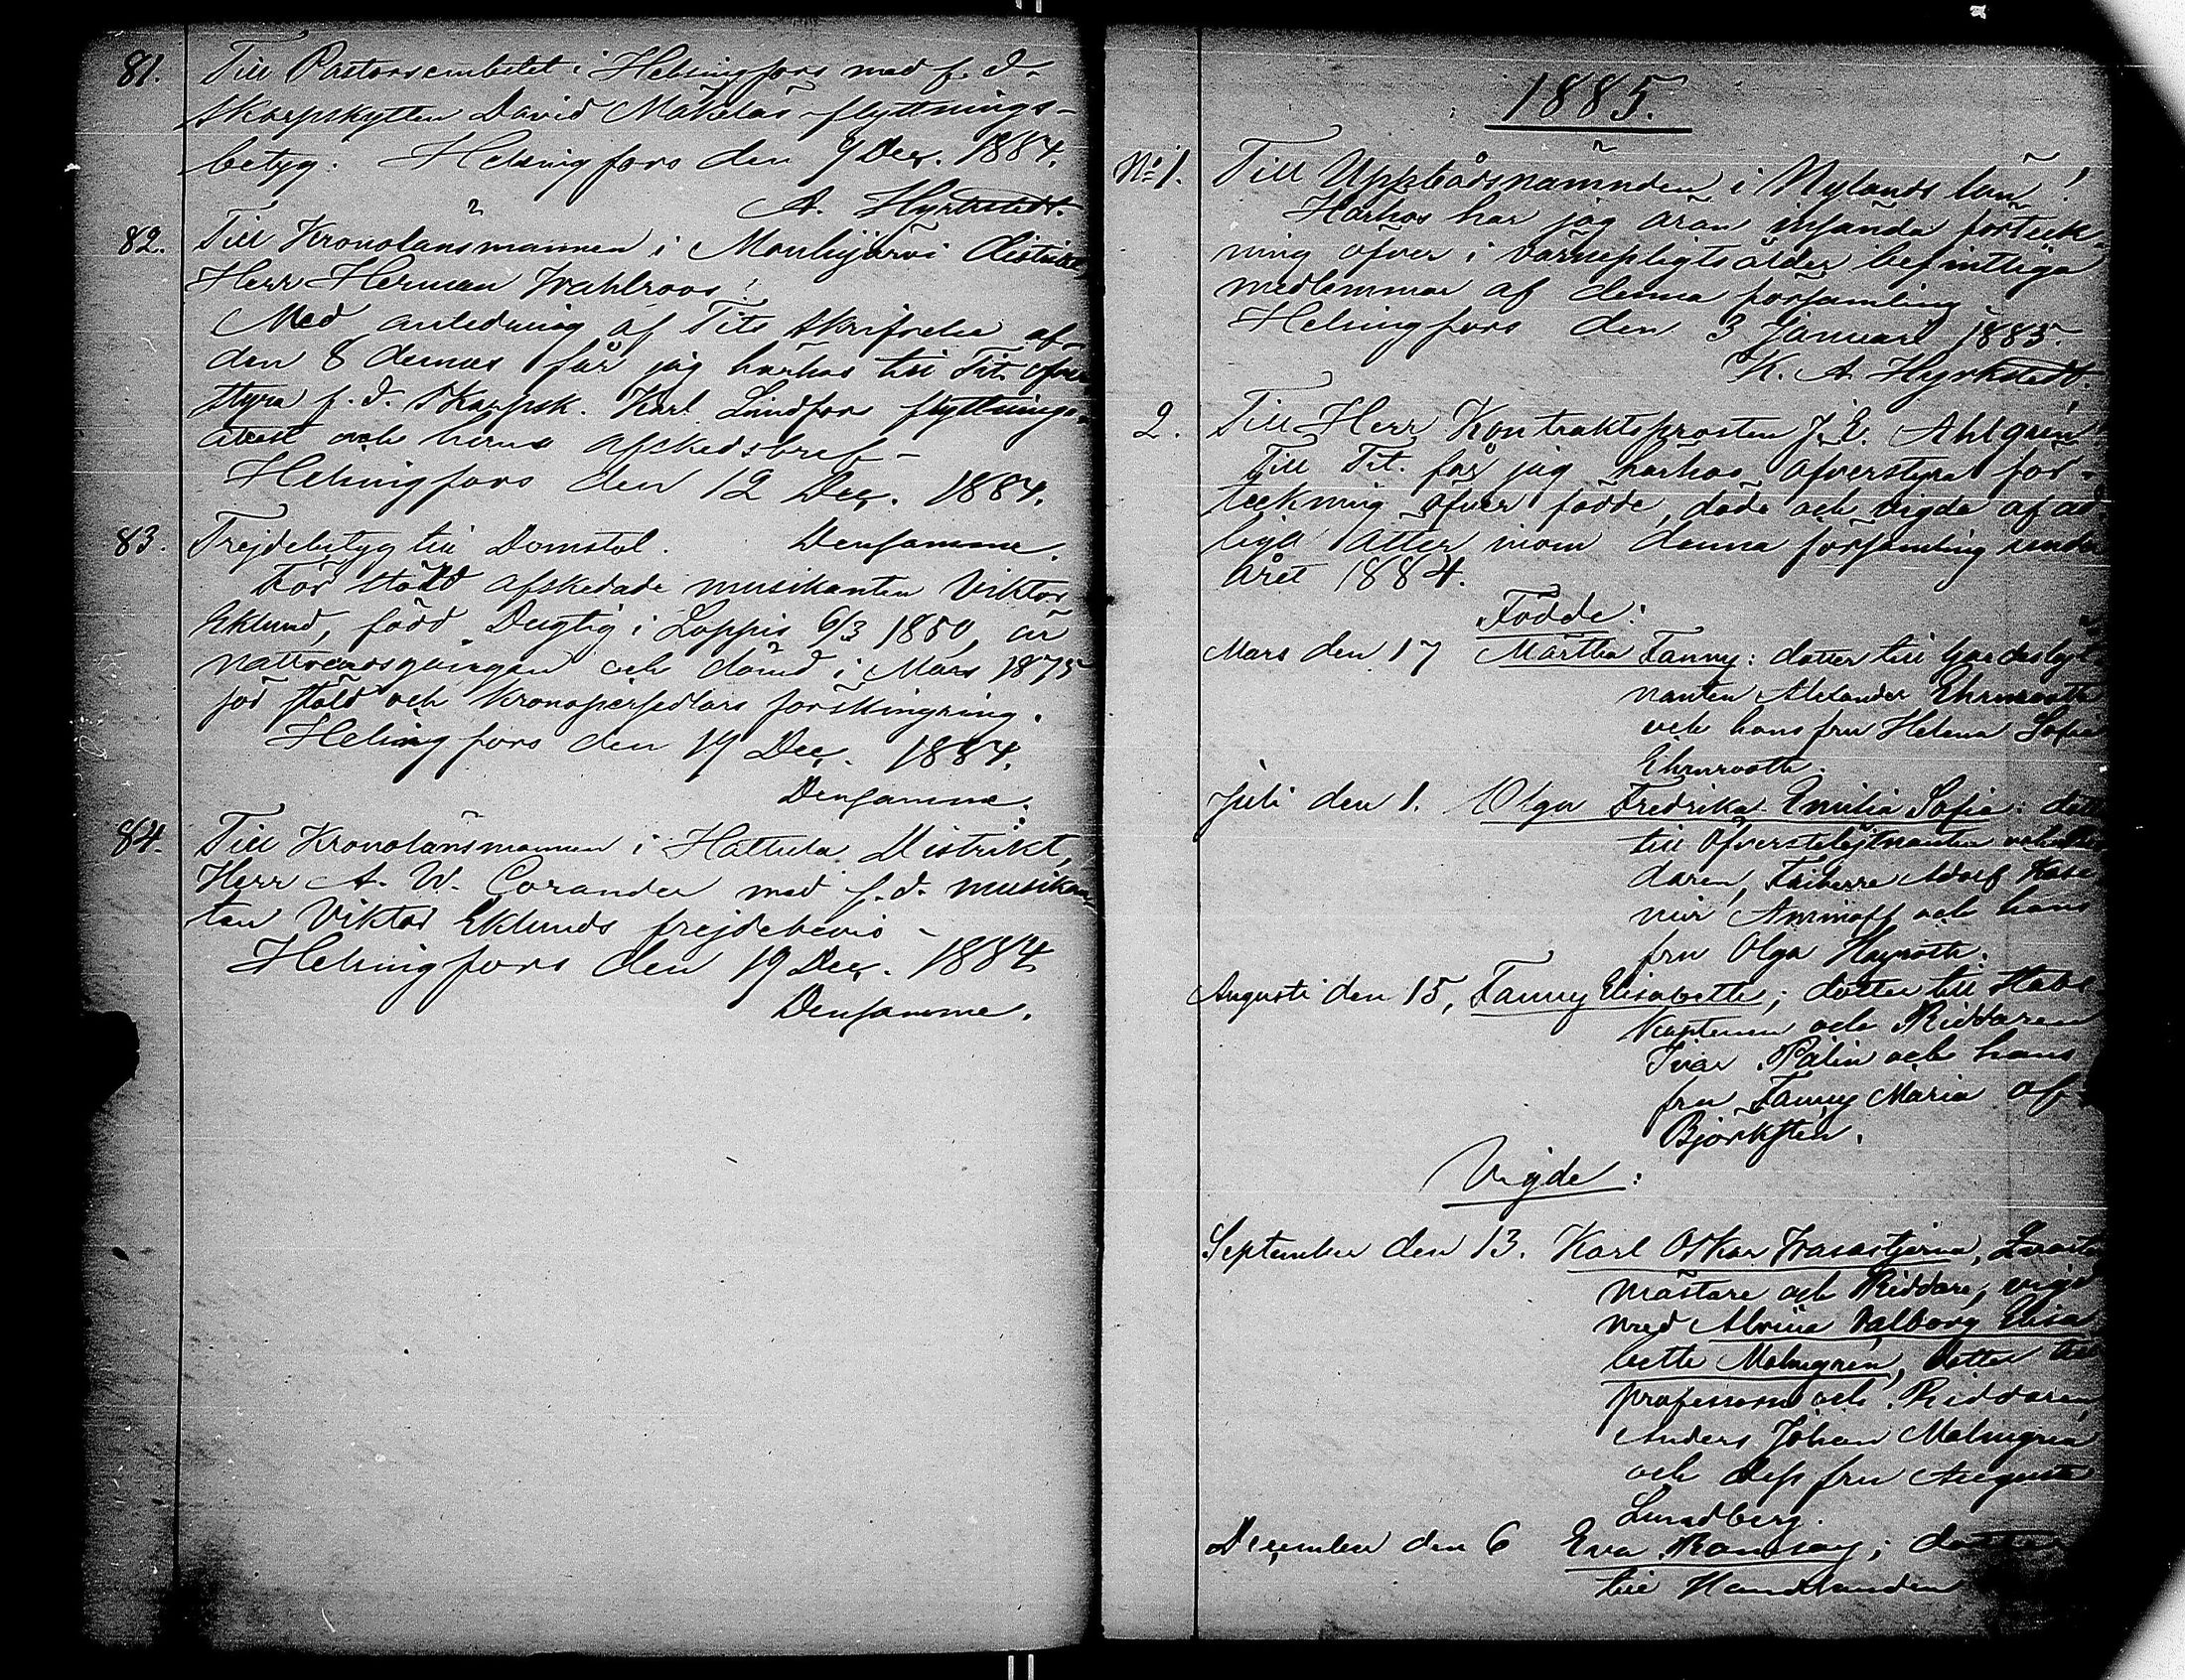 81. Till Pastorsembetet i Helsingfors med f. d.
skarpskytten David Mäkeläs flyttnings-
betyg. Helsingfors den 9 Dec. 1884.
A. Hyrkstedt.
82. Till Kronolänsmannen i Mouhijärvi distrikt,
Herr Herman Wahlroos!
Med anledning af Tits skrifvelse af
den 8 dennes får jag härhos till Tit. öfver
styra f. d. skarpsk. Karl Lindfors flyttnings-
attest och hans afskedsbref –
Helsingfors den 12 Dec. 1884.
Densamme.
83. Frejdebetyg till Domstol.
För stöld afskedade musikanten Viktor
Eklund, född Dugtig i Loppis 6/3 1850, är
nattvardsgången och dömd i Mars 1875
för stöld och kronopersedlars förskingring.
Helsingfors den 19 Dec. 1884.
Densamme.
84. Till Kronolänsmannen i Hattula Distrikt,
Herr A. W. Corander med f. d. musikan
ten Viktor Eklunds frejdebevis –
Helsingfors den 19 Dec. 1884
Densamme.
1885.
No 1. Till Uppbådsnämnden i Nylands län!
Härhos har jag äran insända förteck-
ning öfver i värnepligtsålder befintliga
medlemmar af denna församling
Helsingfors den 3 Januari 1885.
K. A. Hyrkstedt.
2. Till Herr Kontraktsprosten J. E. Ahlgrén
Till Tit. får jag härhos öfverstyra för-
teckning öfver födde, döde och vigda af ad
liga ätter inom denna församling under
året 1884.
Födde:
Mars den 17 Märtha Fanny: dotter till
nanten Alexander Ehrnrooth
och hans fru Helena Sofia
Ehrnrooth.
Juli den 1. Olga Fredrika Emilia Sofia: dott
till Öfverstelöjtnanten och
daren, Friherre Adolf Kasi
mir Aminoff och hans
fru Olga Hayroth.
Augusti den 15, Fanny Elisabeth; dotter till Stabs
kaptenen och Riddaren
Ivar Pälin och hans
fru Fanny Maria af
Björksten.
Vigde:
September den 13. Karl Oskar Wasastjerna,
mästare och Riddare, vigd
med Alvina Valborg Elisa
beth Malmgrén, dotter till
professorn och Riddaren
Anders Johan Malmgrén
och dess fru Augusta
Lundberg.
December den 6 Eva Ramsay; dotter
till Handlanden